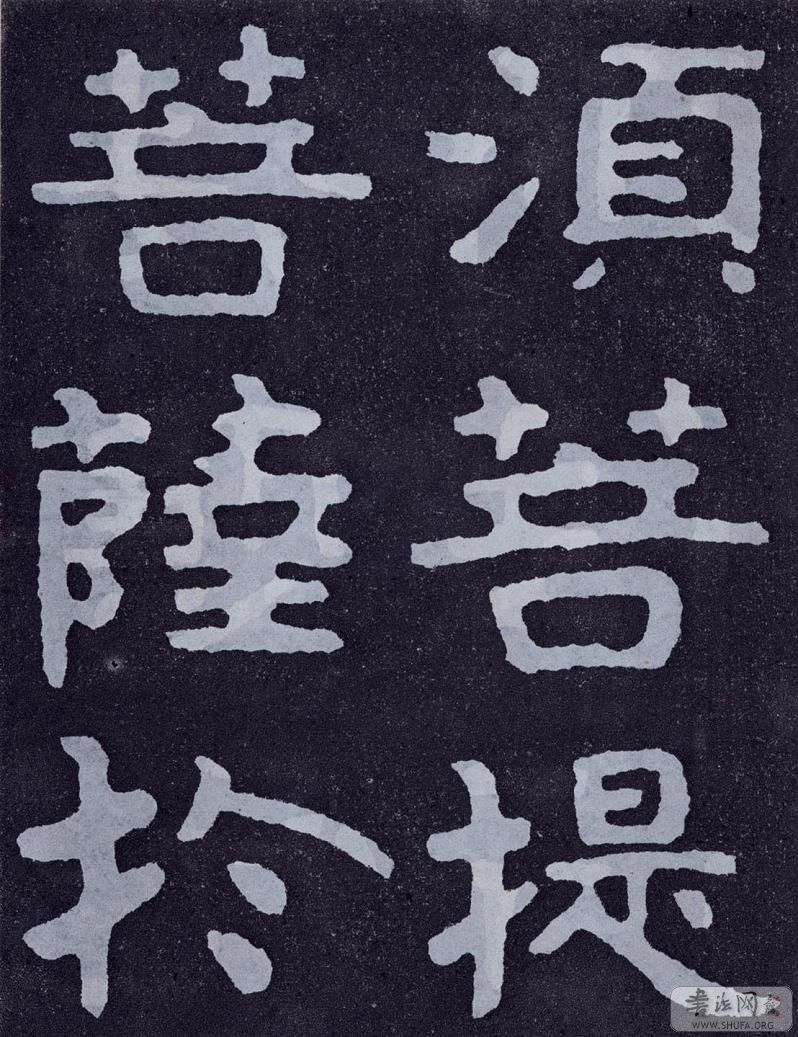 須菩提
菩薩於
書法网
WWW.SHUFA.ORG